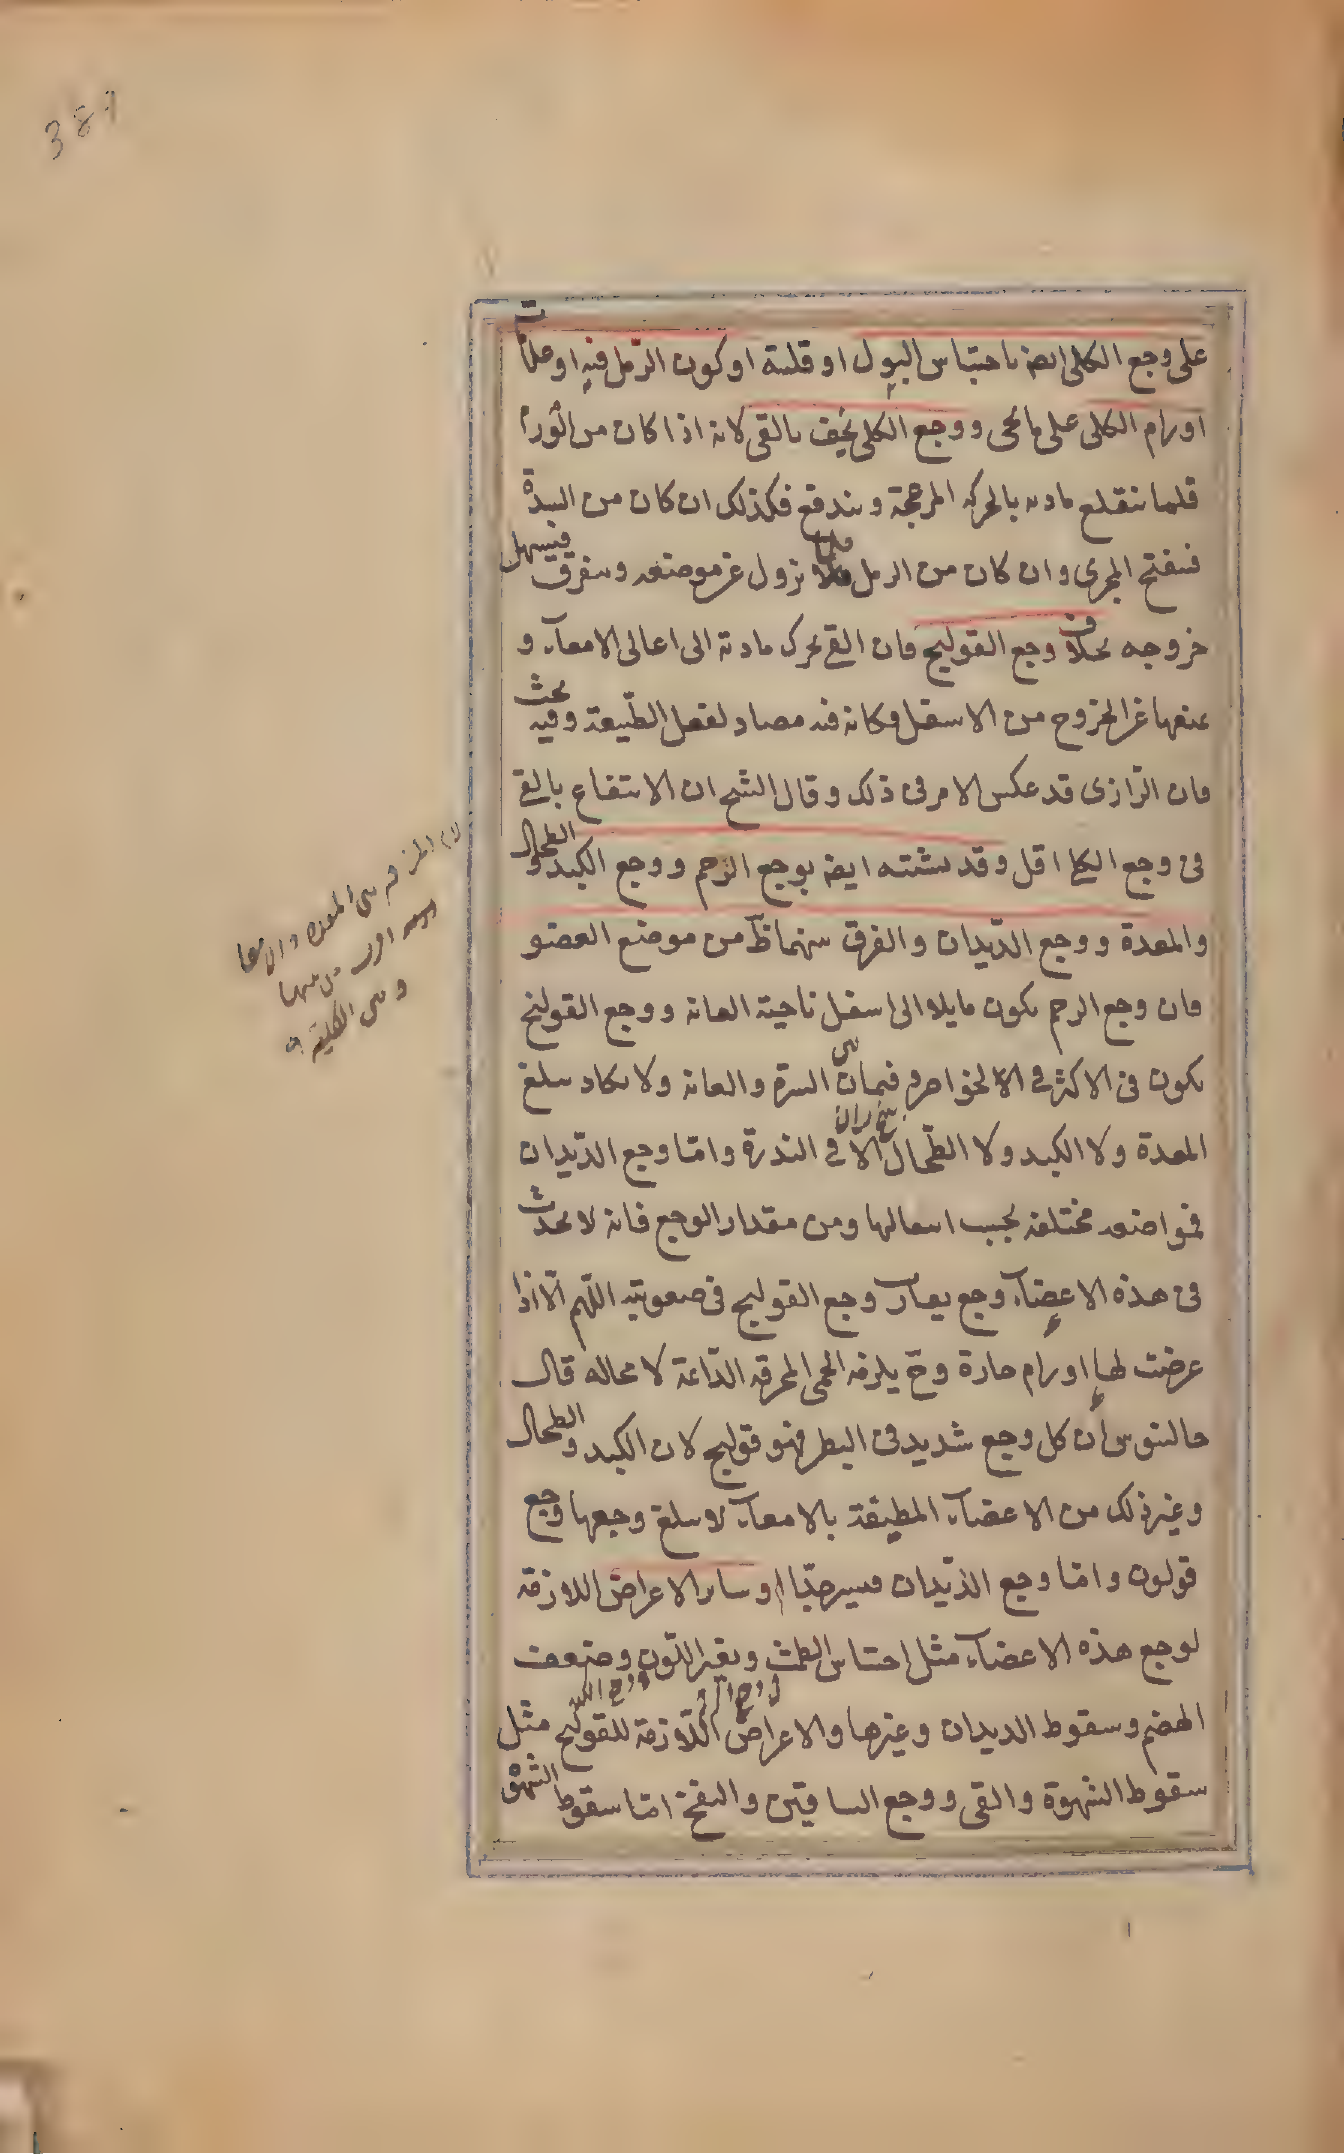 على وجع الكلى ايضه باحتباس البول او قلته او كون الرمل فيه او علامات
اورام الكلى على ما يجى ووجع الكلى يخف بالقى لانه اذا كان من الورم
قلما تنقلع مادته بالحركه المزعجة و يندفع فكذلك ان كان من السدة
فينفتح المجرى وان كان من الرمل فلما يزول عن موضعه ويتفرق فيسهل
خروجه بخلاف وجع القولنج فان القى يحرك مادته الى اعالى الامعاء و
يمنعها عن الخروج من الاسفل وكانه فيه مضاد لفعل الطبيعة وفيه بحث
فان الرازى قد عكس الامر فى ذلك وقال الشيخ ان الانتفاع بالقى
فى وجع الكلى اقل وقد يشتبه ايضه بوجع الرحم ووجع الكبد والطحال
والمعدة ووجع الديدان والفرق بينهما ظ من موضع العضو
فان وجع الرحم يكون مايلا الى اسفل ناحية العانه ووجع القولنج
يكون فى الاكثر فى الخواصر و فيما بين السرة والعانه ولا يكاد يبلغ
المعدة ولا الكبد ولا الطحال الا فى الندرة واما وجع الديدان
فمواضعه مختلفه بحسب انتقالها ومن مقدار الوجع فانه لا يحدث
فى هذه الاعضاء وجع يقارب وجع القولنج فى صعوبته اللهم الا اذا
عرضت لها اورام حارة وح يلزمه الحمى المحرقه الدائمة لا محاله قال
جالينوس ان كل وجع شديد فى البطن فهو قولنج لان الكبد والطحال
وغير ذلك من الاعضاء المطيفة بالامعاء لا يبلغ وجعها وجع
قولون واما وجع الديدان فيسير جدا او سائر الاعراض اللازمه
لوجع هذه الاعضاء مثل احتباس الطمث وتغير اللون وضعف
الهضم وسقوط الديدان وغيرها والاعراض اللازمة للقولنج مثل
سقوط الشهوة والقى ووجع الساقين والنفخ اما سقوط الشهوة